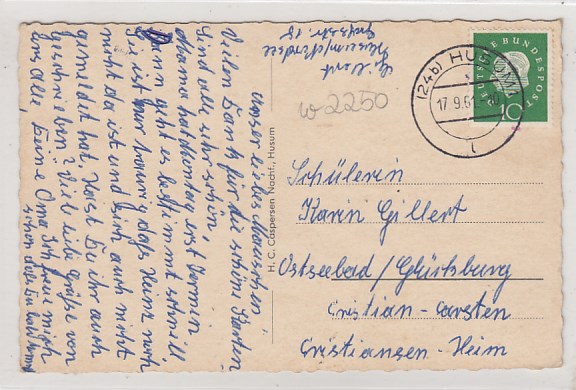 Gillert
Husum/Nordsee
Unser liebes Mäuschen!
Vielen Dank für die schöne Karten
sind alle sehr schön,
Mama hat Montag erst Termin
Dann geht es bestimmt schnell,
Sie ist nur traurig daß Heinz noch
nicht da ist und sich auch nicht
gemeldet hat. Hast Du ihr auch
geschrieben? Viele liebe Grüße von
uns alle, Deine Oma Ich freue mich
schon daß Du bald kommst
w 2250
DEUTSCHE BUNDESPOST
10
(24b) HUSUM
17.9.61
1
H. C. Caspersen Nachf., Husum
Schülerin
Karin Gillert
Ostseebad/Glücksburg
Cristian-Carsten
Cristiansen-Heim